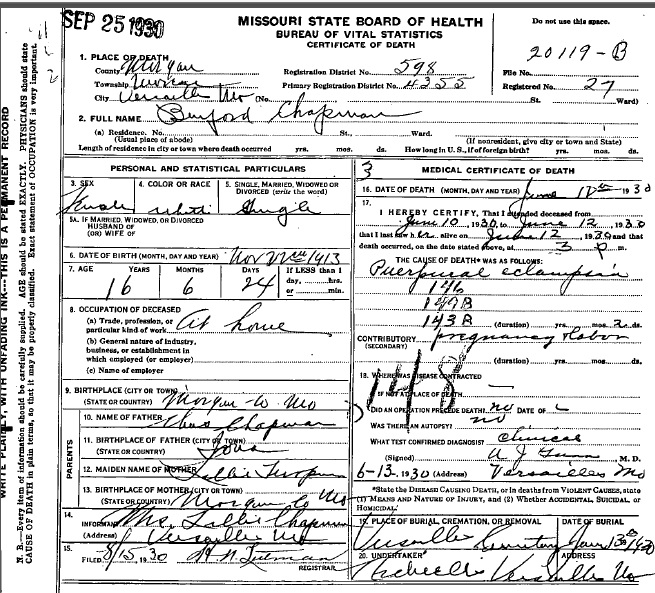 SEP 25 1930
MISSOURI STATE BOARD OF HEALTH
BUREAU OF VITAL STATISTICS
CERTIFICATE OF DEATH
Do not use this space.
20119-B
1. PLACE OF DEATH
County Morgan
Registration District No. 598
File No.
Township
Primary Registration District No. 4355
Registered No. 27
City Versailles Mo (No.
St. Ward)
2. FULL NAME Buford Chapman
(a) Residence. No. St., Ward.
(Usual place of abode) (If nonresident, give city or town and State)
Length of residence in city or town where death occurred yrs. mos. ds. How long in U. S., if of foreign birth? yrs. mos. ds.
PERSONAL AND STATISTICAL PARTICULARS
3. SEX
4. COLOR OR RACE
5. SINGLE, MARRIED, WIDOWED OR DIVORCED (write the word)
white Single
5A. IF MARRIED, WIDOWED, OR DIVORCED
HUSBAND OF
(OR) WIFE OF
6. DATE OF BIRTH (MONTH, DAY AND YEAR) Nov 1913
7. AGE YEARS MONTHS DAYS If LESS than 1
day, hrs.
or min.
16 6 24
8. OCCUPATION OF DECEASED
(a) Trade, profession, or
particular kind of work At home
(b) General nature of industry,
business, or establishment in
which employed (or employer)
(c) Name of employer
9. BIRTHPLACE (CITY OR TOWN)
(STATE OR COUNTRY) Morgan Co Mo
PARENTS
10. NAME OF FATHER Chapman
11. BIRTHPLACE OF FATHER (CITY OR TOWN)
(STATE OR COUNTRY) Iowa
12. MAIDEN NAME OF MOTHER Lillie
13. BIRTHPLACE OF MOTHER (CITY OR TOWN)
(STATE OR COUNTRY) Morgan Co Mo
14.
INFORMANT Mrs. Lillie Chapman
(Address) Versailles Mo
15.
FILED 8/15, 1930
REGISTRAR
3
MEDICAL CERTIFICATE OF DEATH
16. DATE OF DEATH (MONTH, DAY AND YEAR) June 12th 1930
17.
I HEREBY CERTIFY, That I attended deceased from
June 10, 1930, to June 12, 1930
that I last saw her alive on June 12, 1930 and that
death occurred, on the date stated above, at 3 p m.
THE CAUSE OF DEATH* WAS AS FOLLOWS:
Puerperal eclampsia
146
149B
143B
(duration) yrs. mos. 2 ds.
CONTRIBUTORY pregnancy & labor
(SECONDARY)
(duration) yrs. mos. ds.
148
18. WHERE WAS DISEASE CONTRACTED
IF NOT AT PLACE OF DEATH
DID AN OPERATION PRECEDE DEATH? no DATE OF
WAS THERE AN AUTOPSY? no
WHAT TEST CONFIRMED DIAGNOSIS? Clinical
(Signed) A J Gunn, M. D.
6-13, 1930 (Address) Versailles Mo
*State the DISEASE CAUSING DEATH, or in deaths from VIOLENT CAUSES, state
(1) MEANS AND NATURE OF INJURY, and (2) Whether ACCIDENTAL, SUICIDAL or
HOMICIDAL.
19. PLACE OF BURIAL, CREMATION, OR REMOVAL DATE OF BURIAL
Versailles Cemetery June 13th 1930
20. UNDERTAKER ADDRESS
Versailles Mo
WRITE PLAINLY, WITH UNFADING INK---THIS IS A PERMANENT RECORD
N. B.—Every item of information should be carefully supplied. AGE should be stated EXACTLY. PHYSICIANS should state
CAUSE OF DEATH in plain terms, so that it may be properly classified. Exact statement of OCCUPATION is very important.